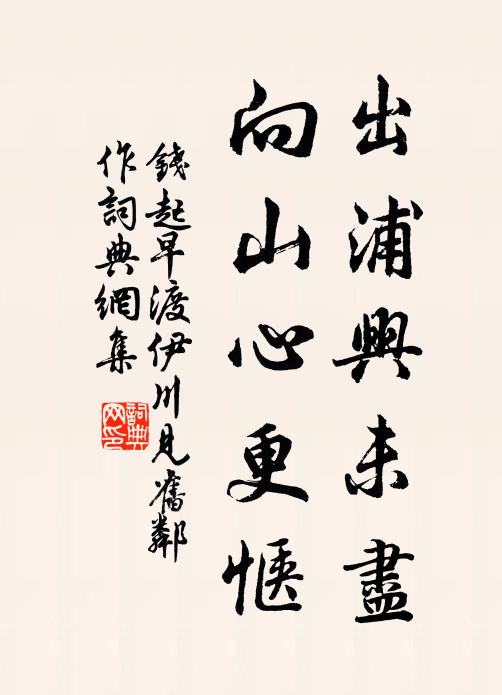 出浦興未盡
向山心更愜
錢起早渡伊川見舊鄰
作詞典網集
詞典网印